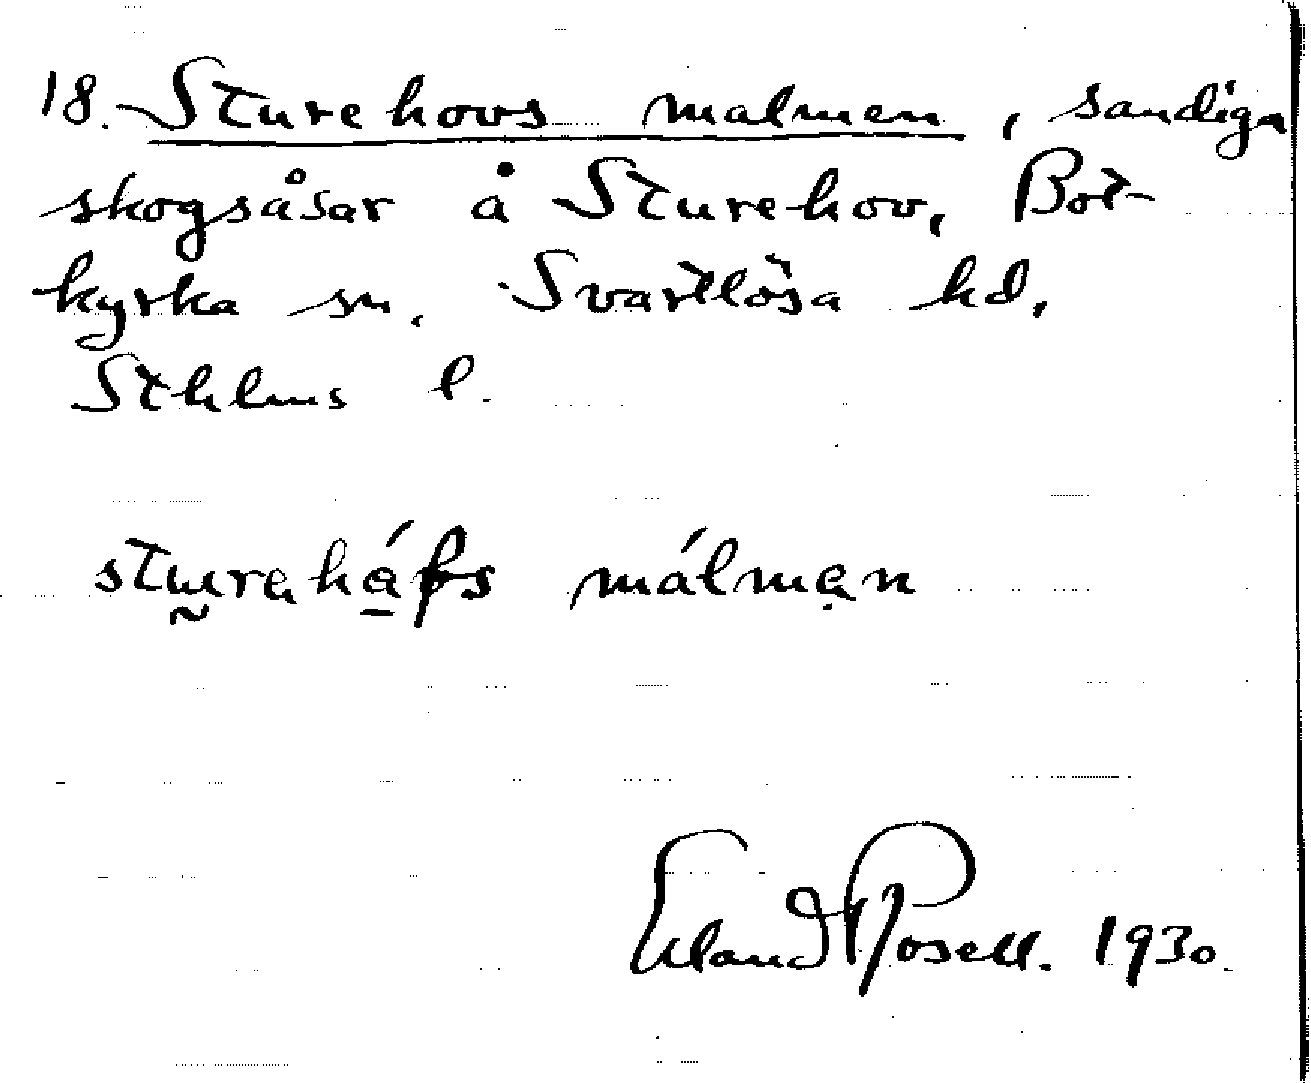 18. Sturehovs malmen, sandiga
skogsåsar å Sturehov, Bot-
kyrka sn. Svartlösa hd,
Sthlms l.
málmən
Erland Rosell. 1930.